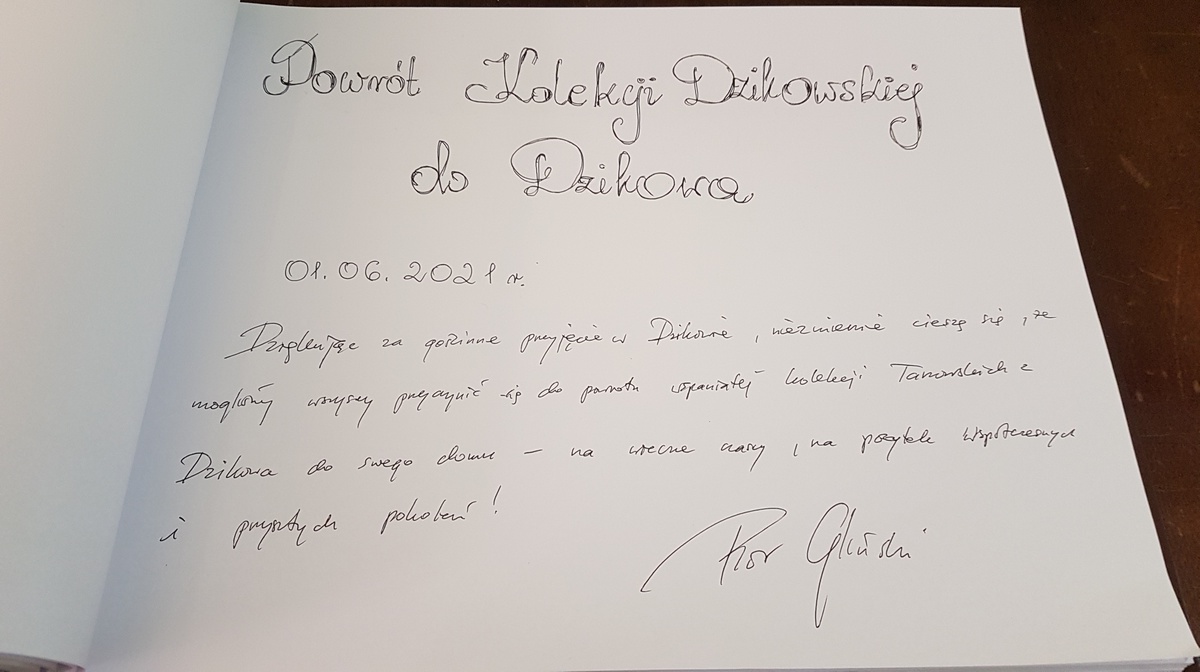 Powrót Kolekcji Dzikowskiej
do Dzikowa
01.06.2021 r.
Dziękując za gościnne przyjęcie w Dzikowie, niezmiernie cieszę się, że
mogliśmy wszyscy przyczynić się do powrotu wspaniałej kolekcji Tarnowskich z
Dzikowa do swego domu – na wieczne czasy, na pożytek współczesnych
i przyszłych pokoleń!
Piotr Gliński